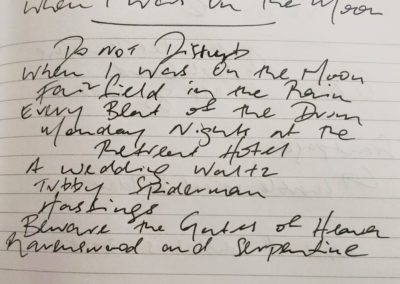 When I Was On The Moon
Do Not Disturb
When I Was On the Moon
Fairfield in the Rain
Every Beat of the Drum
Monday Nights at the
Retreat Hotel
A Wedding Waltz
Tubby Spiderman
Hastings
Beware the Gates of Heaven
Ravenswood and Serpentine